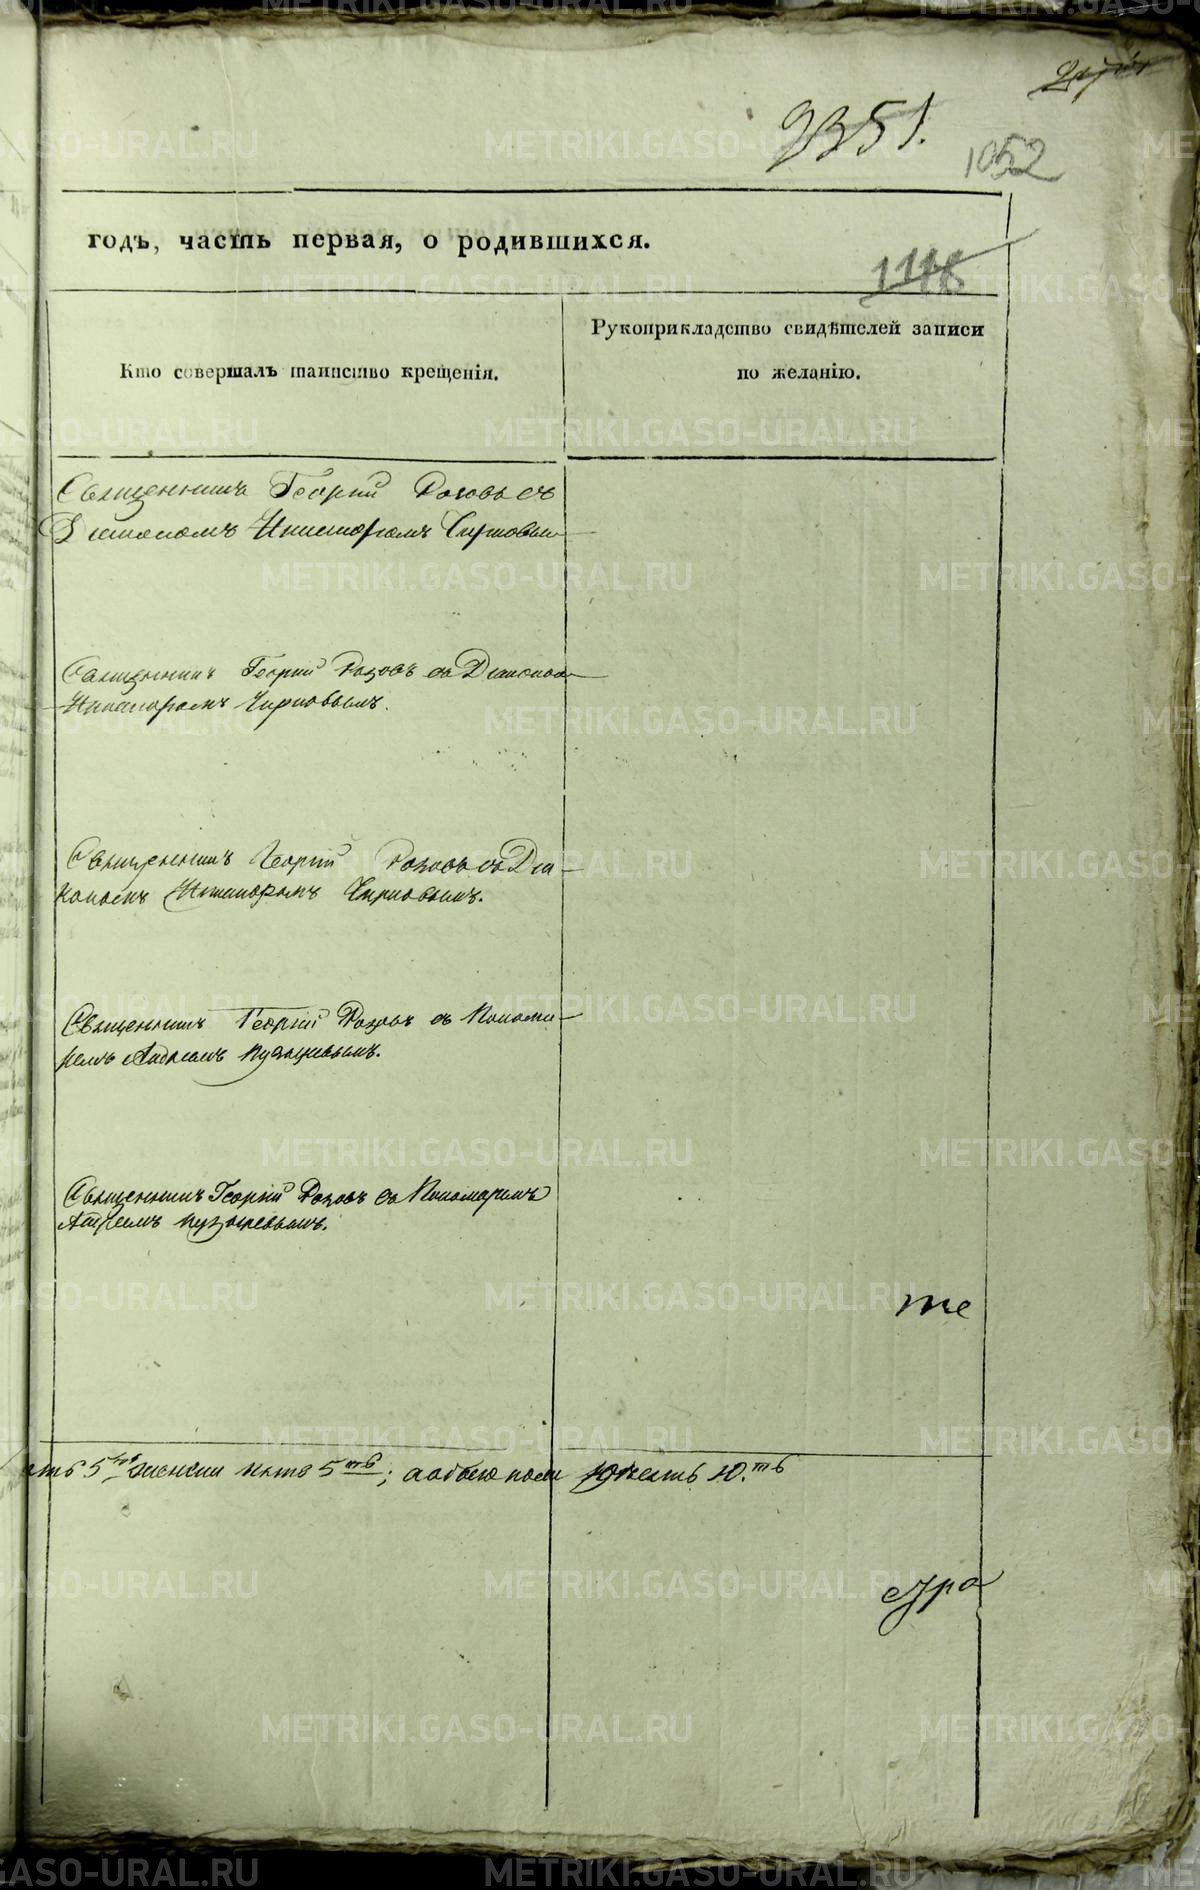 2351.
1052
1118
годъ, часть первая, о родившихся.
Кто совершалъ таинство крещенія.
Рукоприкладство свидѣтелей записи
по желанію.
Священникъ Георгій Роговъ съ
Діакономъ Никаноромъ Чирковым
Священникъ Георгій Роговъ съ Діаконом
Никаноромъ Чирковымъ.
Священникъ Георгій Роговъ съ Діа-
кономъ Никаноромъ Чирковымъ.
Священникъ Георгій Роговъ съ Понома-
ремъ Андреемъ Пузыревымъ.
Священникъ Георгій Роговъ съ Пономаремъ
Андреемъ Пузыревымъ.
те
ять 5ть женска пять 5ть; а обоего пола десять 10.ть
METRIKI.GASO-URAL.RU